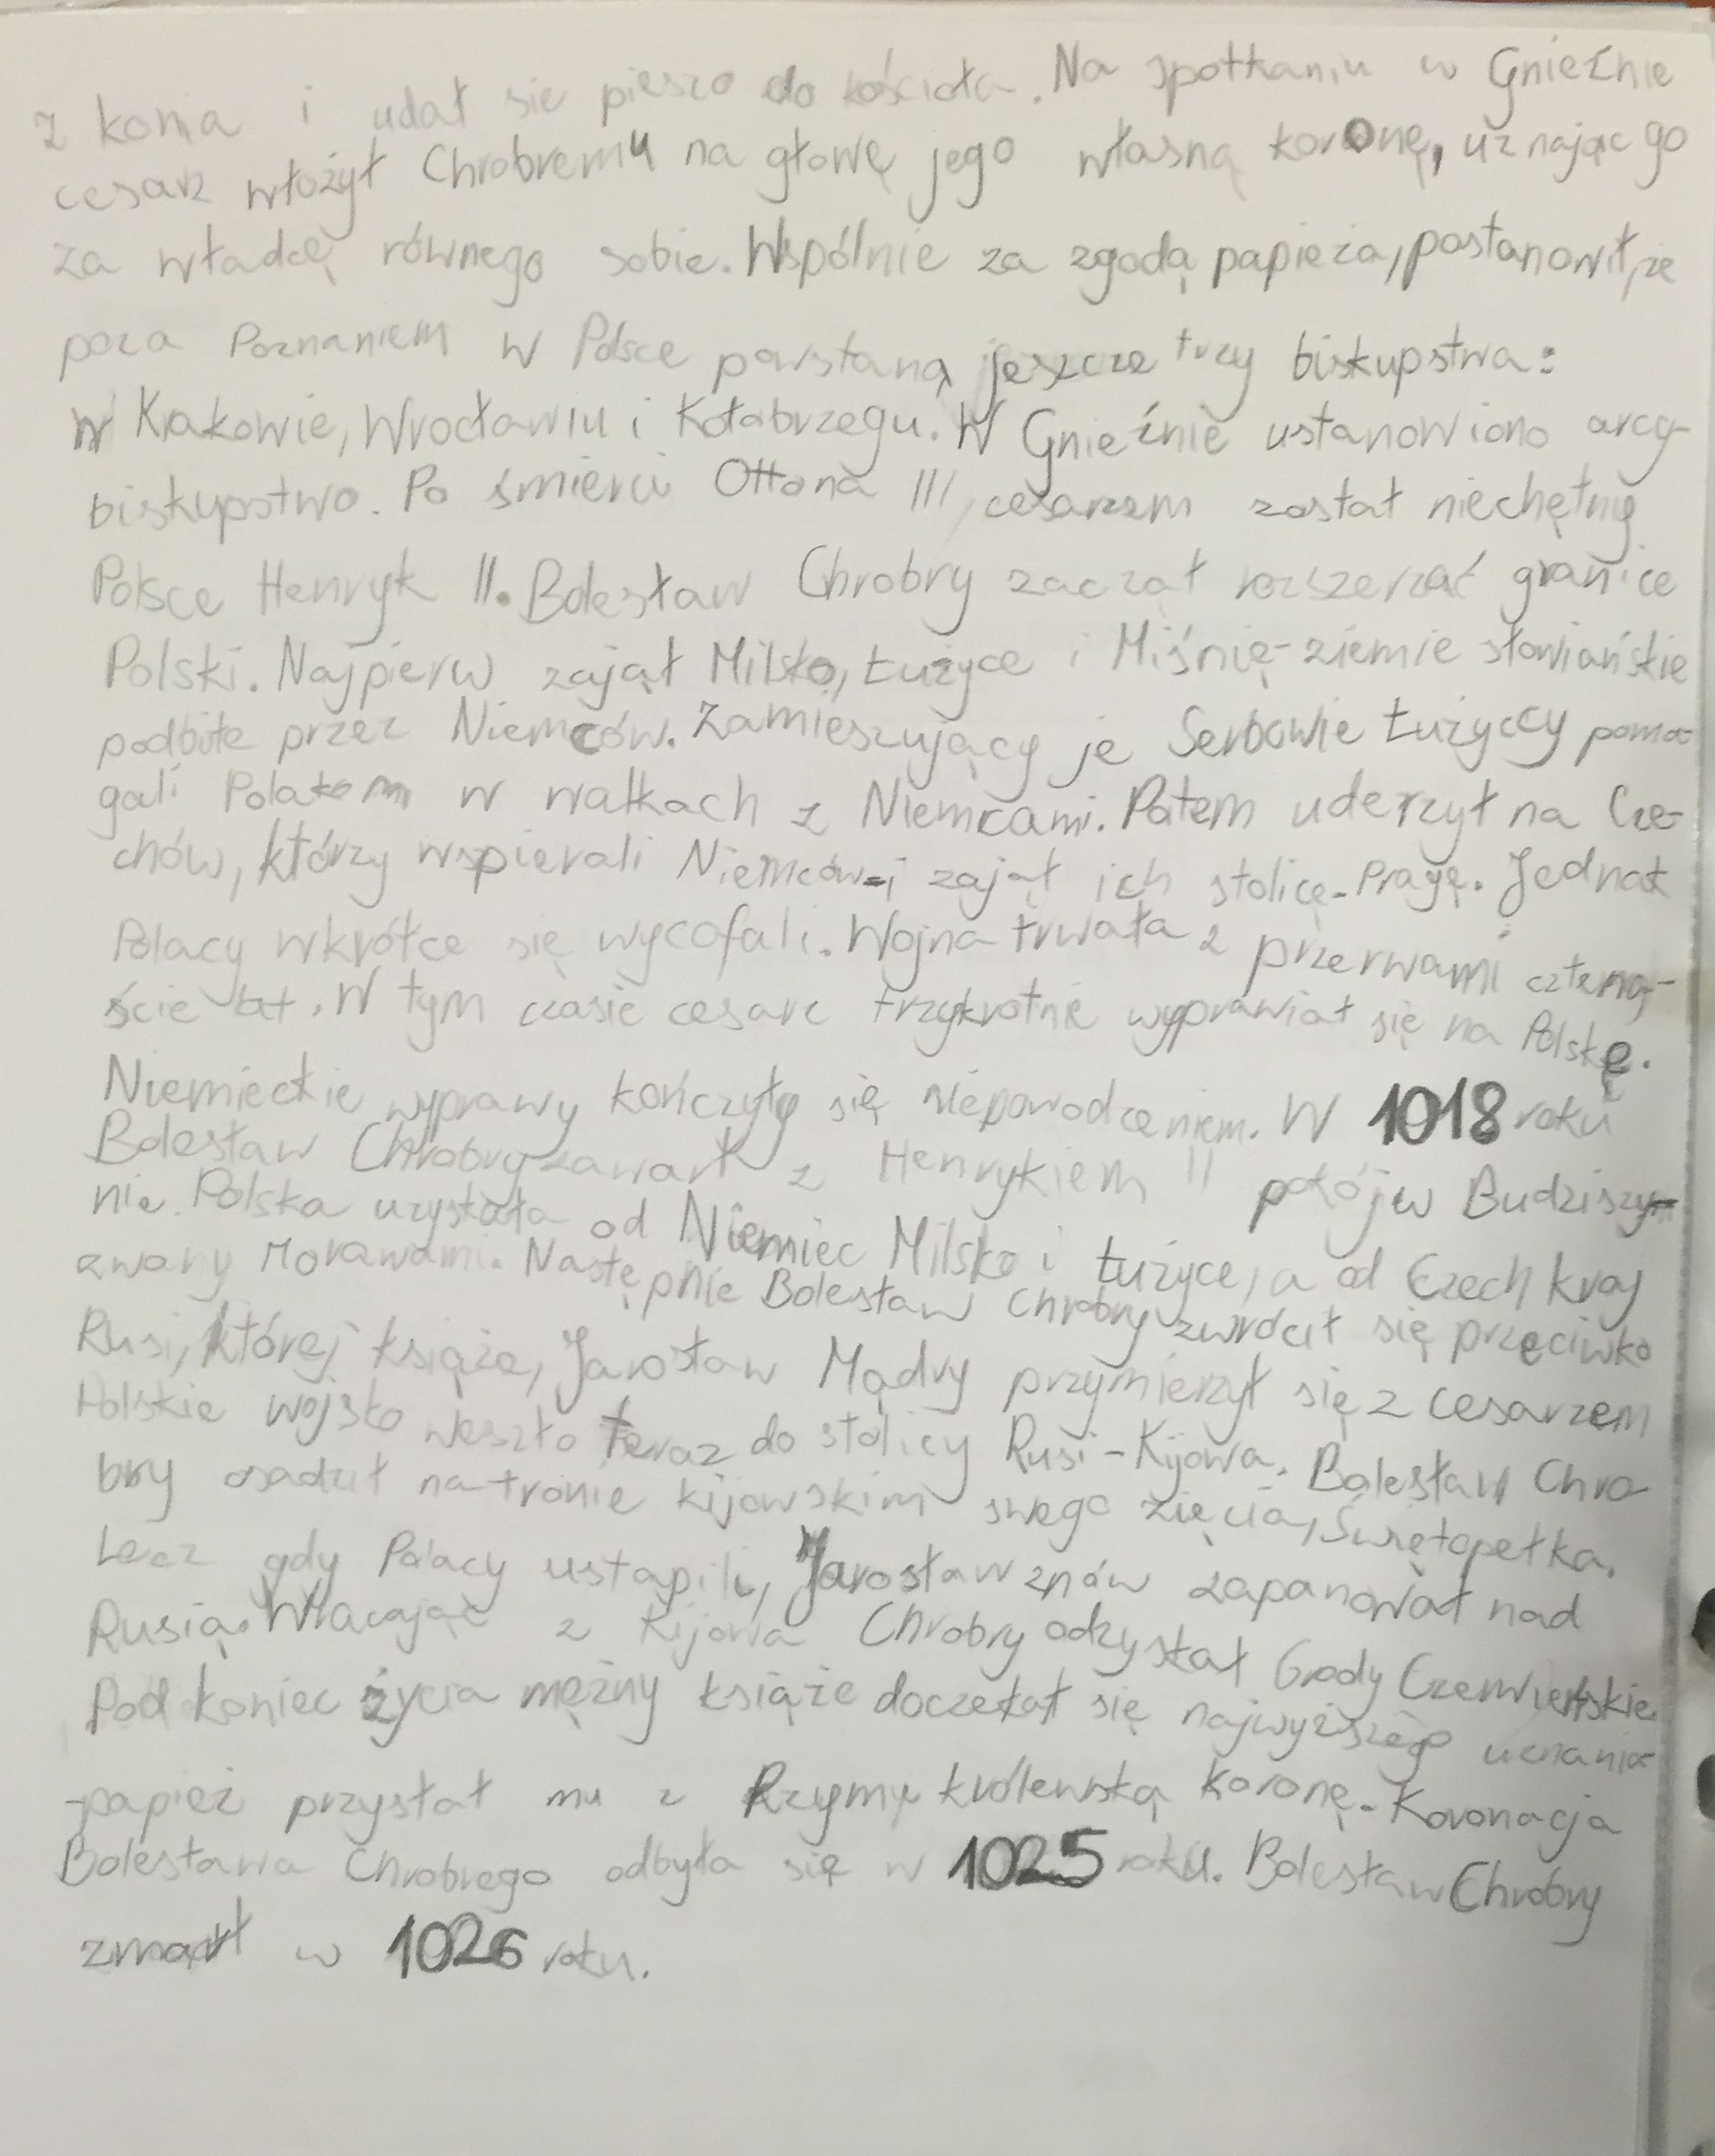 z konia i udał sie pieszo do kościoła. Na spotkaniu w Gnieźnie
cesarz włożył Chrobremu na głowę jego własną koronę, uznając go
za władcę równego sobie. Wspólnie za zgodą papieża, postanowił, że
poza Poznaniem w Polsce powstaną jeszcze trzy biskupstwa:
w Krakowie, Wrocławiu i Kołobrzegu. W Gnieźnie ustanowiono arcy-
biskupstwo. Po śmierci Ottona III, cesarzem został niechętny
Polsce Henryk II. Bolesław Chrobry zaczął rozszerzać granice
Polski. Najpierw zajął Milsko, Łużyce i Miśnię-ziemie słowiańskie
podbite przez Niemców. Zamieszujący je Serbowie Łużyccy poma-
gali Polakom w walkach z Niemcami. Potem uderzył na Cze-
chów, którzy wspierali Niemców-i zajął ich stolicę-Pragę. Jednak
Polacy wkrótce się wycofali. Wojna trwała z przerwami czterna-
ście lat. W tym czasie cesarz trzykrotnie wyprawiał się na Polskę.
Niemieckie wyprawy kończyły się niepowodzeniem. W 1018 roku
Bolesław Chrobry zawarł z Henrykiem II pokój w Budziszy-
nie. Polska uzyskała od Niemiec Milsko i Łużyce, a od Czech kraj
zwany Morawami. Następnie Bolesław Chrobry zwrócił się przeciwko
Rusi, której książe, Jarosław Mądry przymierzył się z cesarzem
Polskie wojsko weszło teraz do stolicy Rusi-Kijowa. Bolesław Chro-
bry osadził na tronie kijowskim swego zięcia, Świętopełka.
Lecz gdy Polacy ustąpili, Jarosław znów zapanował nad
Rusią. Wracając z Kijowa Chrobry odzyskał Grody Czerwieńskie.
Pod koniec życia mężny książe doczekał się najwyższego uznania
-papież przysłał mu z Rzymu królewską koronę. Koronacja
Bolesława Chrobrego odbyła się w 1025 roku. Bolesław Chrobry
zmarł w 1026 roku.